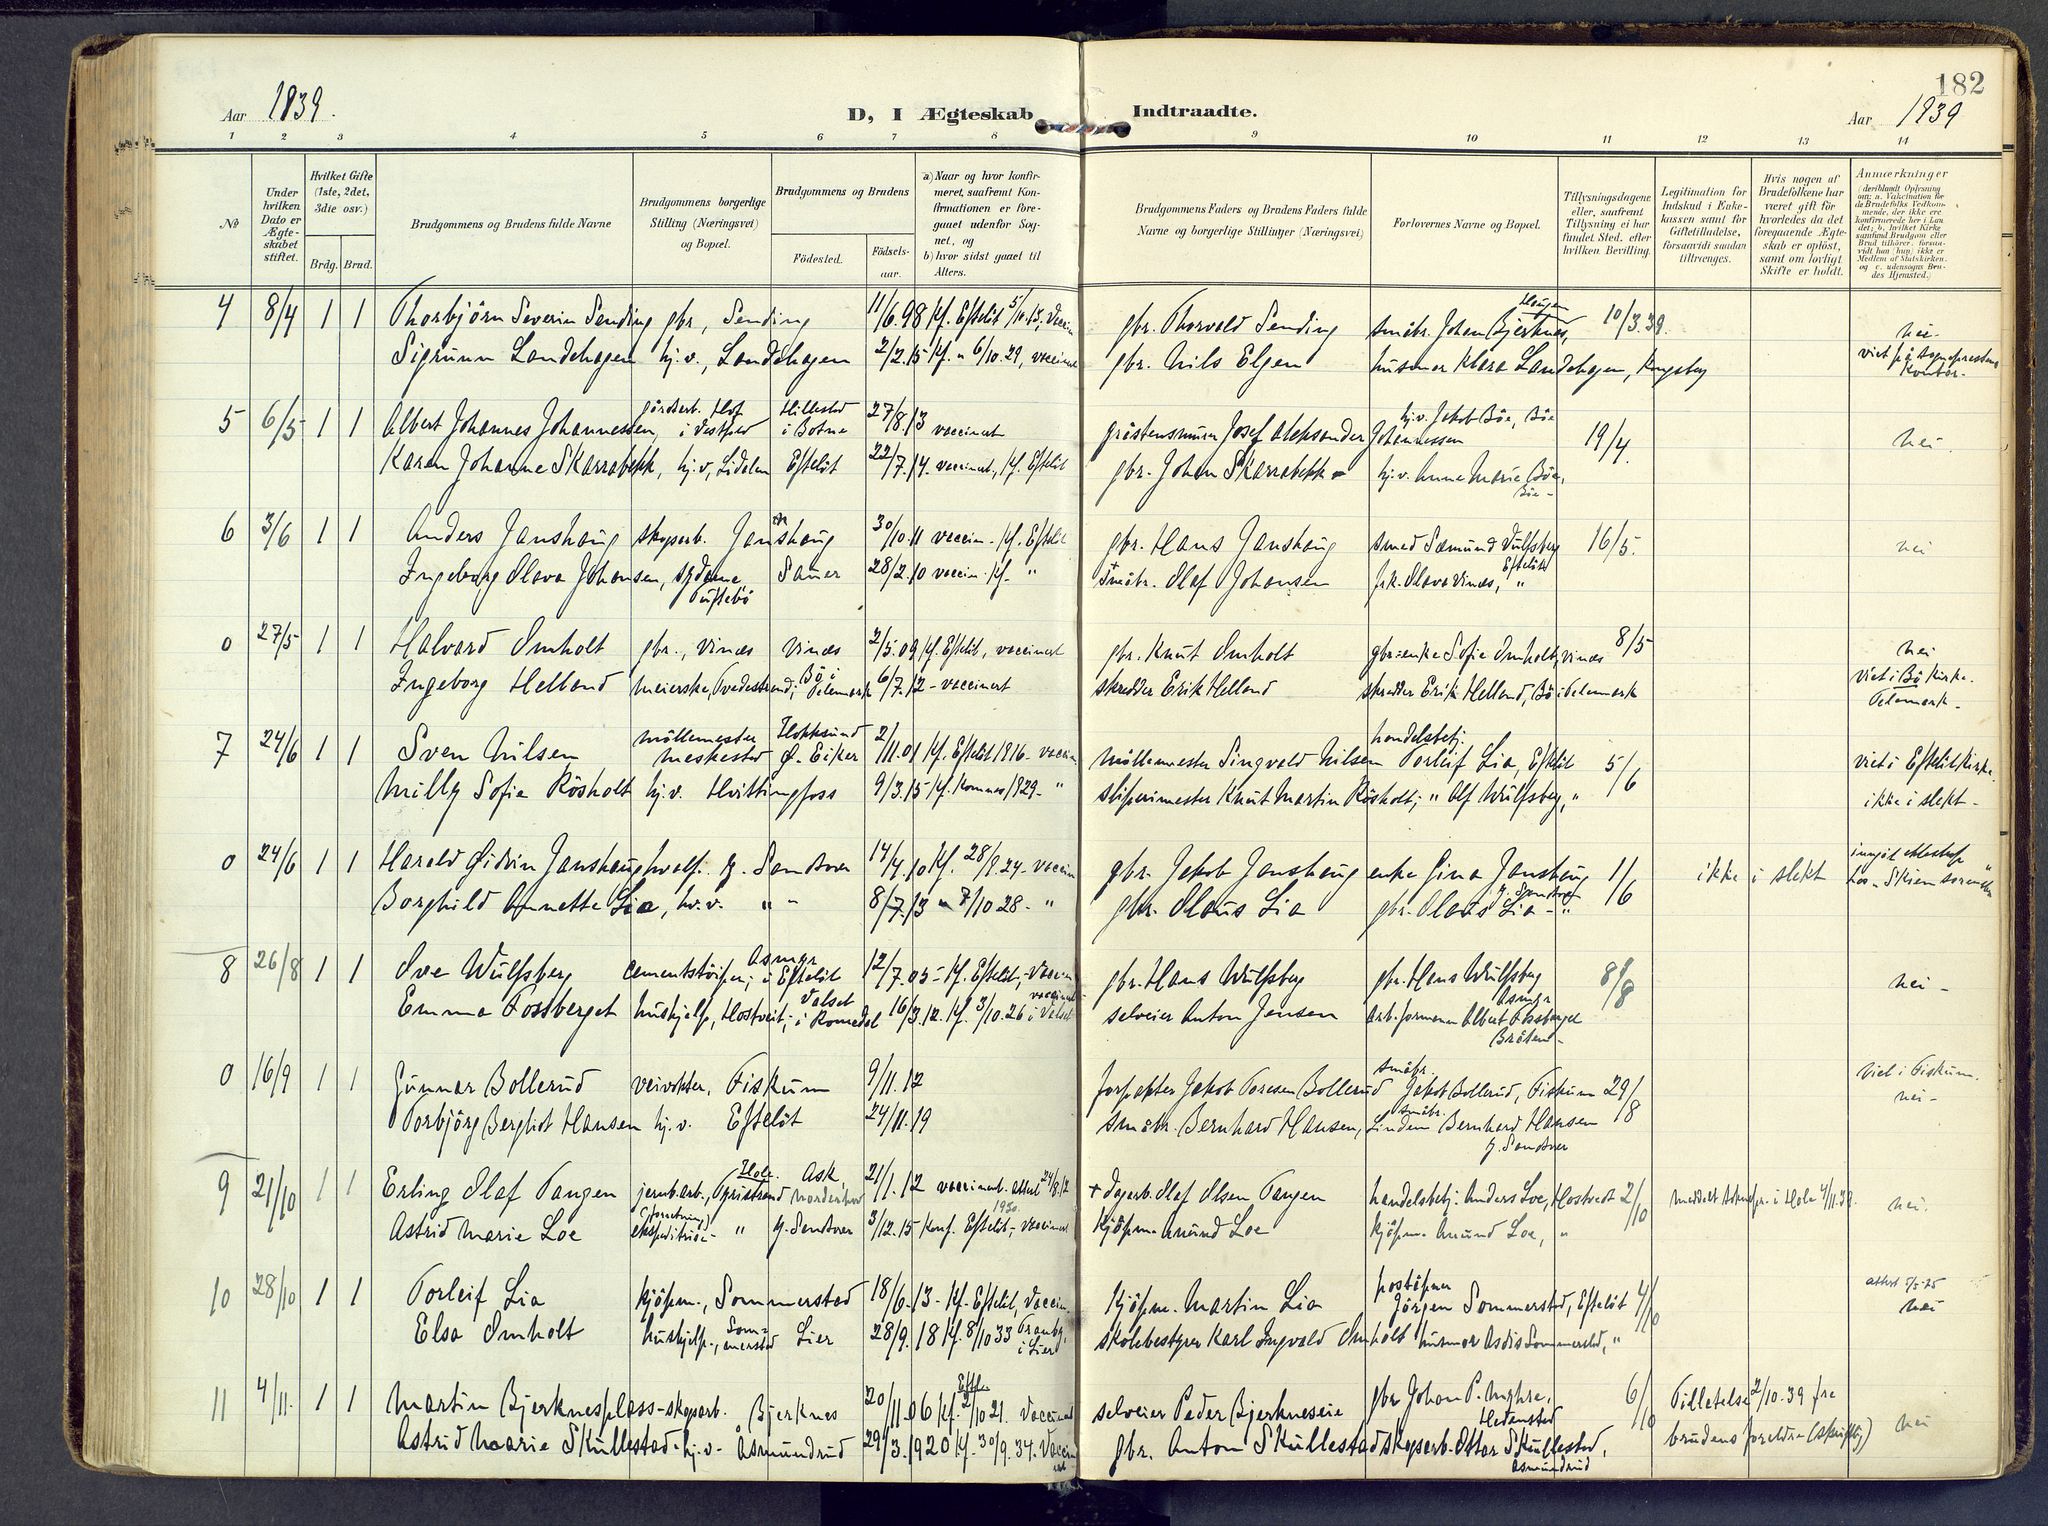 182
Aar 1939.
D, I Ægteskab Indtraadte.
Aar 1939
1 2 3 4 5 6 7 8 9 10 11 12 13 14
No
Under hvilken Dato er Ægteskabet stiftet.
Hvilket Gifte (1ste, 2det, 3die osv.)
Brdg. Brud.
Brudgommens og Brudens fulde Navne
Brudgommens borgerlige Stilling (Næringsvei) og Bopæl.
Brudgommens og Brudens
Födested.
Födselsaar.
a) Naar og hvor konfirmeret, saafremt Konfirmationen er foregaaet udenfor Sognet, og
b) hvor sidst gaaet til Alters.
Brudgommens Faders og Brudens Faders fulde Navne og borgerlige Stillinger (Næringsvei)
Forlovernes Navne og Bopæl.
Tillysningsdagene eller, saafremt Tillysning ei har fundet Sted, efter hvilken Bevilling.
Legitimation for Indskud i Enkekassen samt for Giftetilladelse, forsaavidt saadan tiltrænges.
Hvis nogen af Brudefolkene har været gift för hvorledes da det foregaaende Ægteskab er oplöst, samt om lovligt Skifte er holdt.
Anmærkninger
4 8/4 1 1 Thorbjörn Severin Sending gbr., Sending 11/6.98 Kf. Eftelöt 5/10.13, Vaccin gbr. Thorvald Sending småbr. Johan Bjerknes, Haugen 10/3.39. nei.
Sigrunn Landehagen hj.v., Landehagen 2/2.15 Kf. " 6/10.29, vaccinert gbr. Nils Elgen husmor Klara Landehagen, Kongsberg viet på sogneprestens Kontor.
5 6/5 1 1 Albert Johannes Johannessen, gårdsarb. Hof i Vestfold Hillestad i Botne 27/8.13 vaccinert gråstensmurer Josef Aleksander Johannessen hj.v. Jakob Böe, Böe 19/4. nei.
Karen Johanne Skarrabekk, hj.v., Lidalen Eftelöt 22/7.14. vaccinert, Kf. Eftelöt gbr. Johan Skarrabekk hj.v. Anne Marie Böe, Böe
6 3/6 1 1 Anders Janshaug skogsarb. Janshaug 30/10.11 vaccin. Kf. Eftelöt gbr. Hans Janshaug smed Sæmund Vulfsberg Eftelöt 16/5. nei
Ingeborg Olava Johansen, sydame, Tuftebö Sauer 28/2.10 vaccin. Kf. " småbr. Olaf Johansen frk. Olava Vinæs, "
0 27/5 1 1 Halvard Omholt gbr., Vinæs Vinæs 2/5.09 Kf. Eftelöt, vaccinert gbr. Knut Omholt gbr.enke Sofie Omholt, Vinæs 8/5 nei
Ingeborg Helland meierske, Tvedestrand, Bö i Telemark 6/7.12 - vaccinert skredder Erik Helland skredder Erik Helland, Bö i Telemark viet i Bö Kirke. Telemark.
7 24/6 1 1 Sven Nilsen möllemester Meskestad Hokksund Ø. Eiker 2/11.01 Kf. Eftelöt 1916. vaccin möllemester Singvald Nilsen handelsbetj. Torleif Lia, Eftelöt 5/6 viet i Eftelöt Kirke.
Milly Sofie Rösholt hj.v. Hvittingfoss 9/3.15 Kf. Komnes 1929. " sliperimester Knut Martin Rösholt, " Alf Wulfsberg, " ikke i slekt.
0 24/6 1 1 Harald Øidvin Janshaug Y. Sandsvær 14/4.10 Kf. 28/9.24. vaccin gbr. Jakob Janshaug enke Gina Janshaug Y. Sandsvær 1/6 ikke i slekt
Borghild Annette Lia, hv.v. " " 8/7.13 " 7/10 28. " gbr. Olaus Lia gbr. Olaus Lia "
8 26/8 1 1 Ove Wulfsberg cementstöiper, Asmgr i Eftelöt 12/7.05 Kf. Eftelöt, Vaccin gbr. Hans Wulfsberg gbr. Hans Wulfsberg Asmgr 8/8 nei
Emma Fossberget hushjelp, Hostveit, Valset i Romedal 16/3.12. Kf. 3/10.26 i Valset vaccinert selveier Anton Jensen arb.formann Albert Bråten
0 16/9 1 1 Gunnar Bollerud veivokter, Fiskum 9/11.12 forpakter Jakob Toresen Bollerud småbr. Jakob Bollerud, Fiskum 29/8 Viet i Fiskum. nei
Torbjörg Bergliot Hansen hj.v. Eftelöt 24/11.19 småbr. Bernhard Hansen, Linden småbr. Bernhard Hansen Y. Sandsvær
9 21/10 1 1 Erling Olaf Tangen jernb.arb., Tyristrand Hole Ask, Norderhov 21/1.12 vaccinert. attest 24/8.12 + dagarb. Olaf Olsen Tangen handelsbetj. Anders Loe, Hostvedt 2/10 nei.
Astrid Marie Loe forretningsekspeditrise " Y. Sandsvær 3/12.15 Konf. Eftelöt 1930. Vaccinert Kjöpm. Amund Loe kjöpm. Amund Loe, "
10 28/10 1 1 Torleif Lia kjöpm., Sommerstad 18/6.13 - Kf. Eftelöt, Vaccin. kjöpm. Martin Lia poståpner Jörgen Sommerstad, Eftelöt 4/10 nei
Elsa Omholt hushjelp., Sommerstad Lier 28/9.18 Kf. 8/10 33 Tranby, i Lier skolebestyrer Karl Ingvald Omholt husmor Asdis Sommerstad, "
11 4/11. 1 1 Martin Bjerknesplass skogsarb. Bjerknes 20/11.06 Kf. Eftl. 2/10 21. Vaccinert selveier Peder Bjerkneseie gbr Johan P. Myhre, Hedenstad 6/10 Tilletelse 2/10.39 fra nei
Astrid Marie Skullestad hj.v. Åsmundrud 29/3.1920 Kf. 30/9.34. Vaccinert gbr. Anton Skullestad skogsarb. Ottar Skullestad, Åsmundrud brudens foreldre (skriftlig)